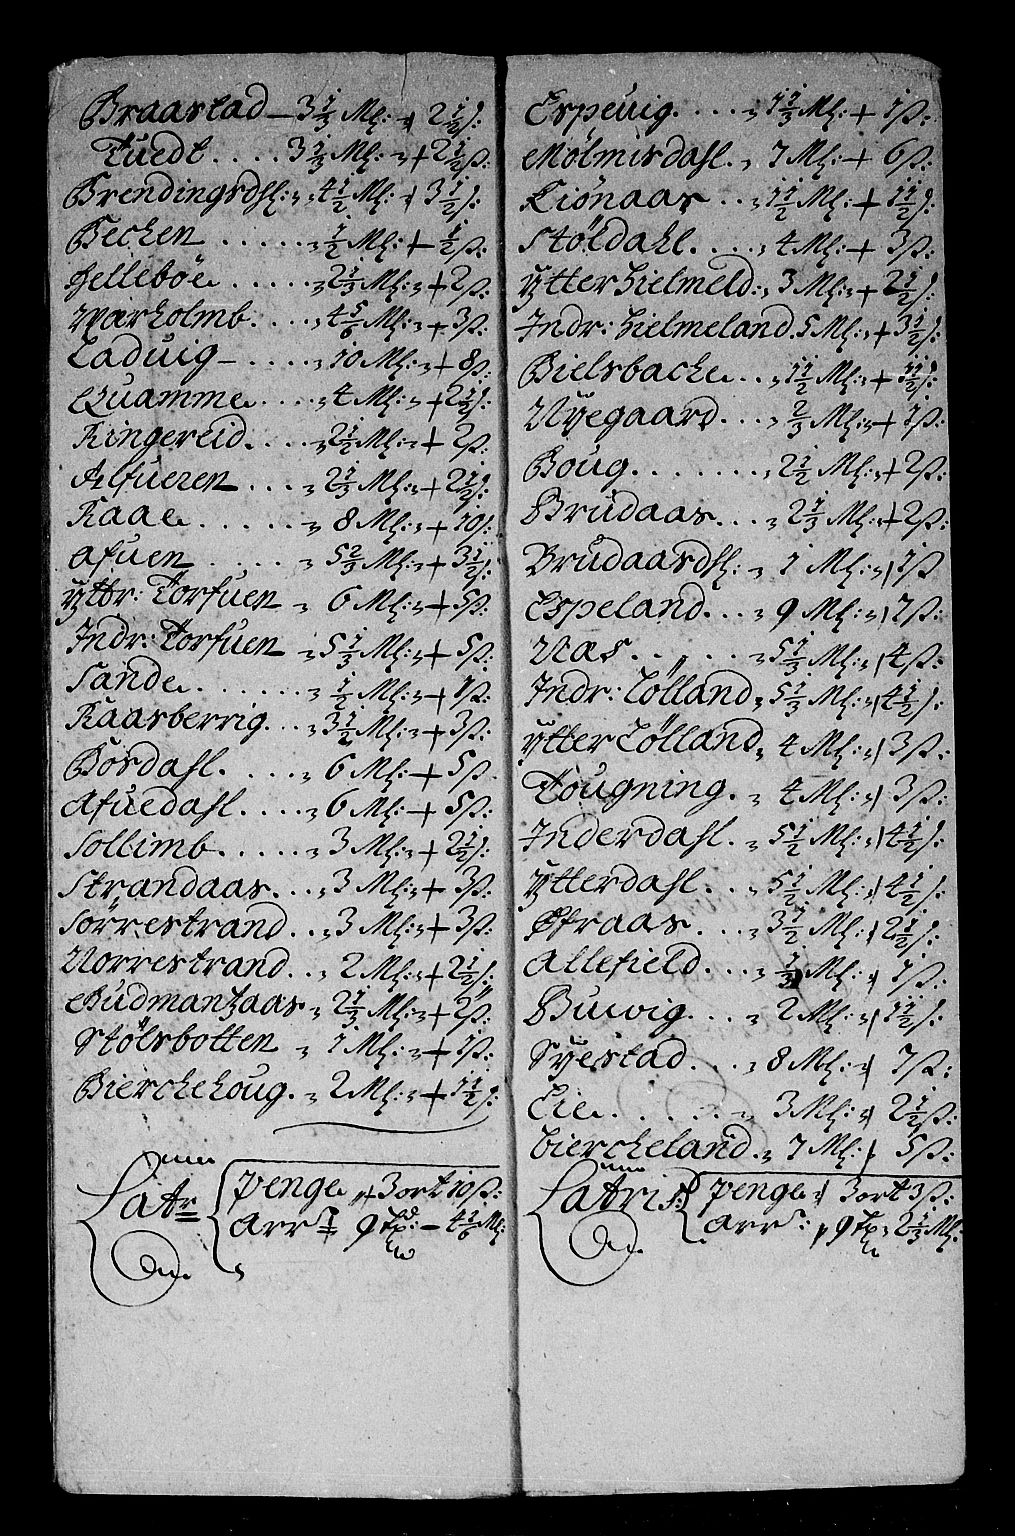 Braastad — 3 1/3 Ml: + 2 1/2 ß:
Tuedt . . . . 3 1/3 Ml: + 2 1/2 ß:
Brendingsdhl: 4 1/2 Ml: + 3 1/2 ß:
Bechen . . . . . 1/2 Ml: + 1/2 ß:
Hellebøe . . . . . 2 1/3 Ml: + 2 ß:
Warholmb . . . . 4 5/6 Ml: + 3 ß:
Laduig — . . . . 10 Ml: + 8 ß:
Quamme . . . . 4 Ml: + 2 1/2 ß:
Ringereid . . . . 2 1/2 Ml: + 2 ß:
Alfueren . . . 2 1/3 Ml: + 2 1/2 ß:
Raae . . . . . . 8 Ml: + 10 ß:
Afuen . . . . . 5 2/3 Ml: + 3 1/2 ß:
Ÿttr: Torfuen 6 Ml: + 5 ß:
Indr: Torfuen 5 1/3 Ml: + 5 ß:
Sande . . . . . . 1/2 Ml: + 1 ß:
Raasberrig . . . 3 1/2 Ml: + 3 ß:
Bordahl . . . . . 6 Ml: + 5 ß
Afuedahl . . . . 6 Ml: + 5 ß:
Sollimb . . . . . 3 Ml: + 2 1/2 ß:
Strandaas . . . 3 Ml: + 3 ß:
Sørrestrand . . 3 Ml: + 3 ß:
Norrestrand . . 2 Ml: + 2 1/2 ß:
Gudmantzaas 2 1/3 Ml: + 2 ß:
Stølsbotten 1 Ml: + 1 ß:
Bierchehoug . 2 Ml: + 1 1/2 ß:
Latr penge 3 ort 10 ß:
arr 9 4 1/6 Ml:
Espeuig . . . . 1 1/3 Ml: + 1 ß:
Mølmisdahl . 7 Ml: + 6 ß:
Liønaas . . 1 1/2 Ml: + 1 1/2 ß:
Støldahl . . . . 4 Ml: + 3 ß:
Ÿtter Hielmeld: 3 Ml: + 2 1/2 ß:
Indr: Hielmeland . 5 Ml: + 3 1/2 ß:
Bielsbache . . 1 1/2 Ml: + 1 1/2 ß:
Nyegaard . . . 2/3 Ml: + 1 ß:
Boug . . . . . . . 2 1/2 Ml: + 2 ß:
Brudaas . . . 2 1/3 Ml: + 2 ß:
Brudaasdhl: 1 Ml: + 1 ß
Espeland . . . 9 Ml: + 7 ß:
Næs . . . . . 5 1/3 Ml: + 4 ß:
Indr: Lølland 5 1/3 Ml: + 4 1/2 ß:
Ÿtter Lølland 4 Ml: + 3 ß:
Tougning . 4 Ml: + 3 ß:
Inderdahl . 5 1/2 Ml: + 4 1/2 ß:
Ÿtterdahl . . 5 1/2 Ml: + 4 1/2 ß:
Ofraas . . . 3 1/2 Ml: + 2 1/2 ß:
Allefield . . . 1/3 Ml: + 1 ß:
Buwig . . . 2 Ml: + 1 1/2 ß:
Syestad . . . 8 Ml: + 7 ß:
Lie . . . . . . 3 Ml: + 2 1/2 ß:
Biercheland . 7 Ml: + 5 ß:
Latris: penge 3 ort 3 ß:
arr: 9 2 1/3 Ml: